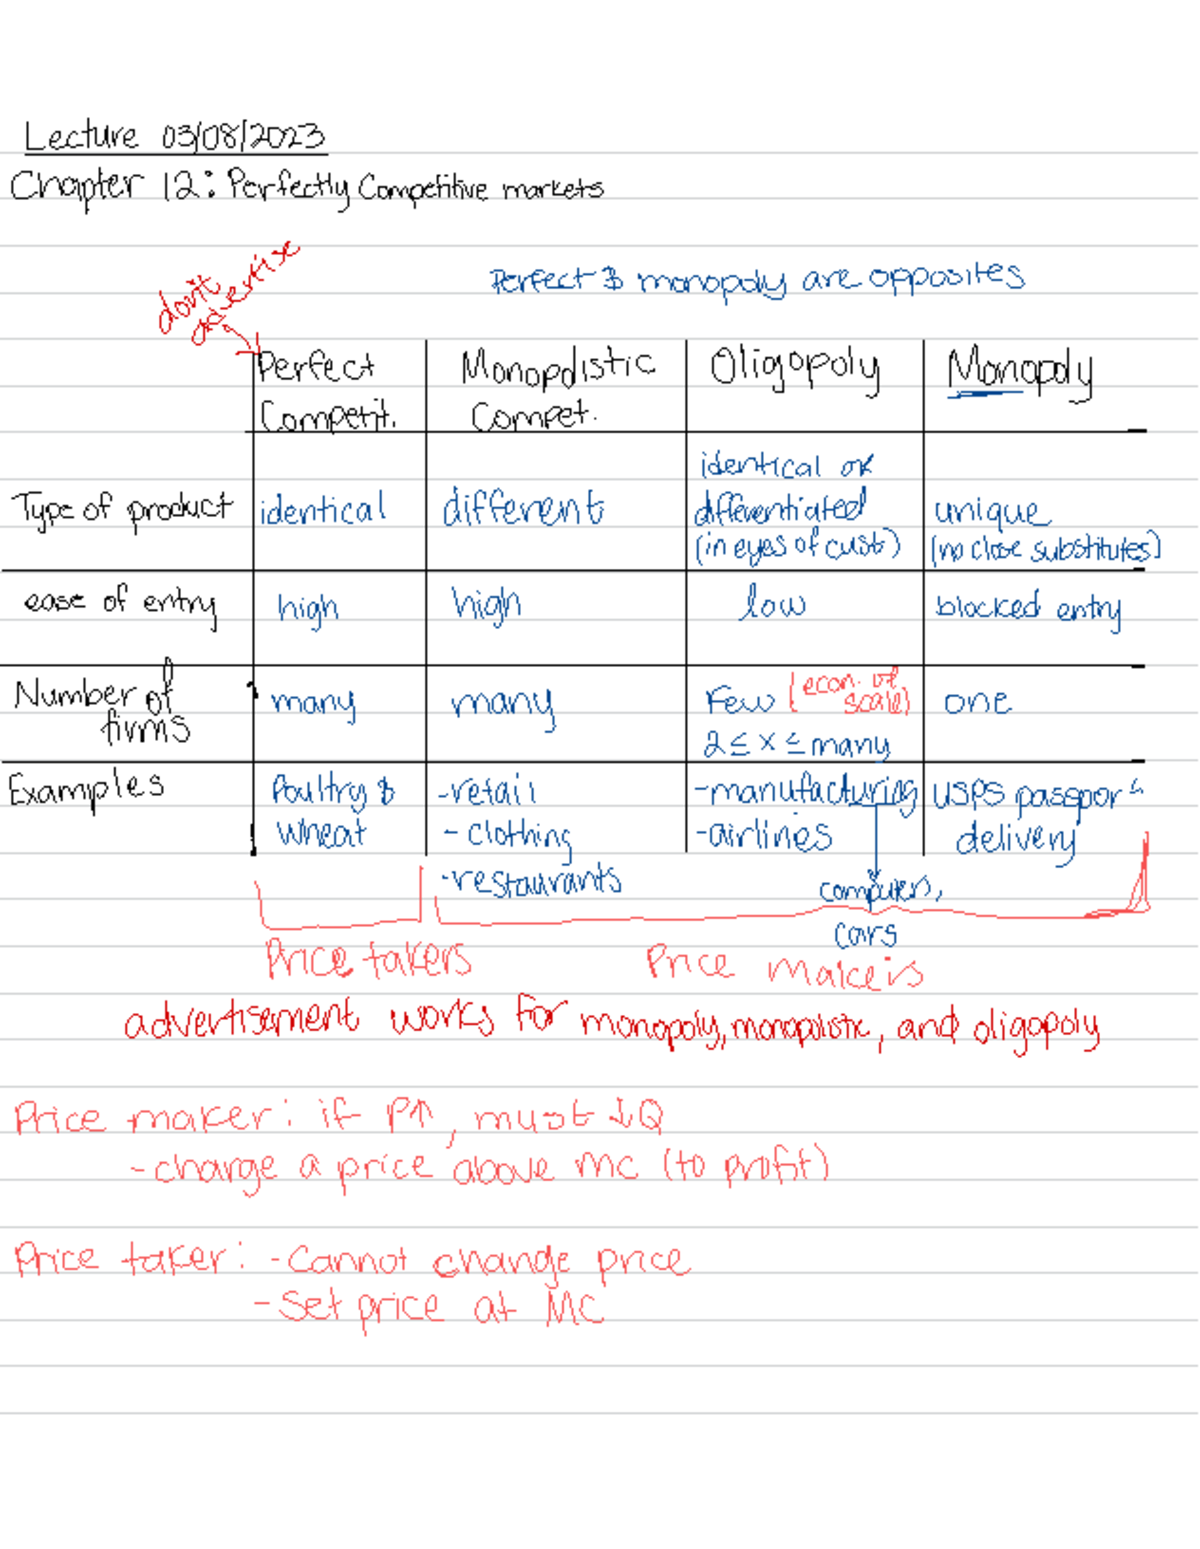 Lecture 03/08/2023
Chapter 12: Perfectly Competitive markets
don't advertise
Perfect & monopoly are opposites
Perfect Competit. Monopolistic Compet. Oligopoly Monopoly
Type of product identical different identical or differentiated (in eyes of cust) unique (no close substitutes)
ease of entry high high low blocked entry
Number of firms many many Few (econ. of scale) 2 ≤ x ≤ many one
Examples Poultry & Wheat -retail - clothing -restaurants -manufacturing -airlines USPS passport delivery
computers,
cars
Price takers Price makers
advertisement works for monopoly, monopolistic, and oligopoly
Price maker: if P↑, must ↓Q
-charge a price above MC (to profit)
Price taker: -Cannot change price
-Set price at MC